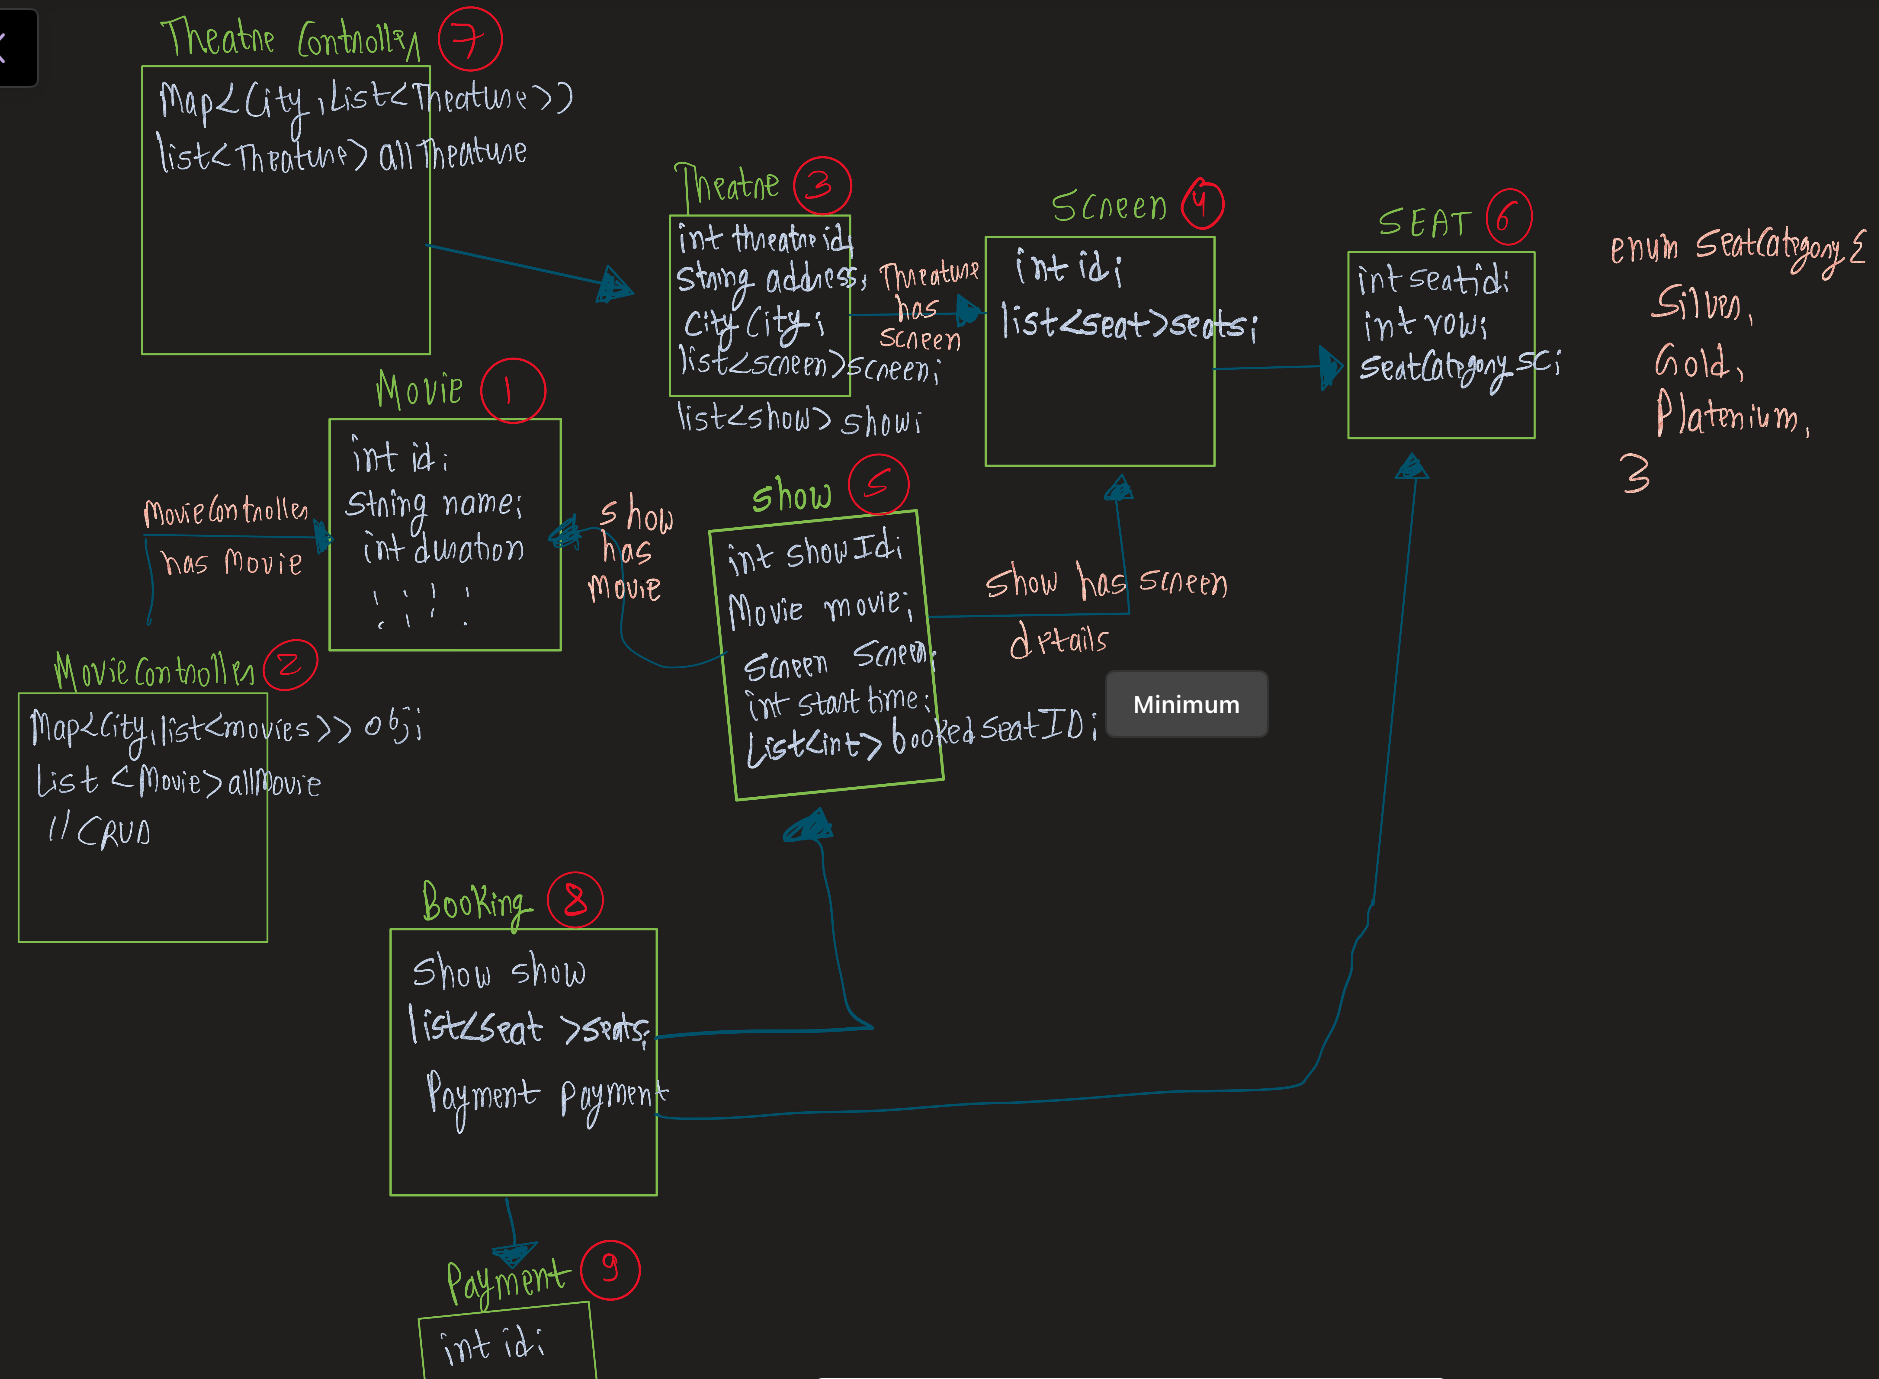 Theatre Controller 7
Map<City, List<Theature>>
list<Theature> allTheature
Theatre 3
int threatre id
String address;
City City;
list<screen>screen;
list<show> show;
Threature
has
screen
Screen 4
int id;
list<seat>seats;
SEAT 6
int seatid;
int row;
seatCategory SC;
enum SeatCategory {
Silver,
Gold,
Platenium,
}
Movie 1
int id;
String name;
int duration
MovieController
has Movie
show
has
Movie
Show 5
int showId;
Movie movie;
Screen Screen;
int start time;
List<int> bookedSeatID;
Show has screen
details
Minimum
MovieController 2
Map<City, list<movies>> obj;
List <Movie> allMovie
// CRUD
Booking 8
Show show
list<Seat >seats;
Payment payment
Payment 9
int id;